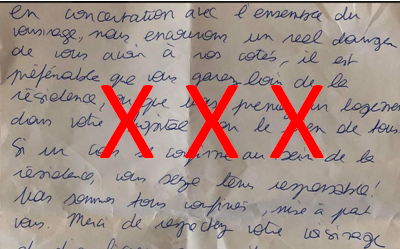 en concertation avec l'ensemble du
voisinage, nous encourons un réel danger
de vous avoir à nos cotés, il est
préférable que vous gariez loin de la
résidence, ou que vous preniez un logement
dans votre hopital pour le bien de tous.
Si un cas se confirme au sein de la
résidence, vous serez tenu responsable!
Nous sommes tous confinés, mise à part
vous. Merci de respecter votre voisinage
X X X